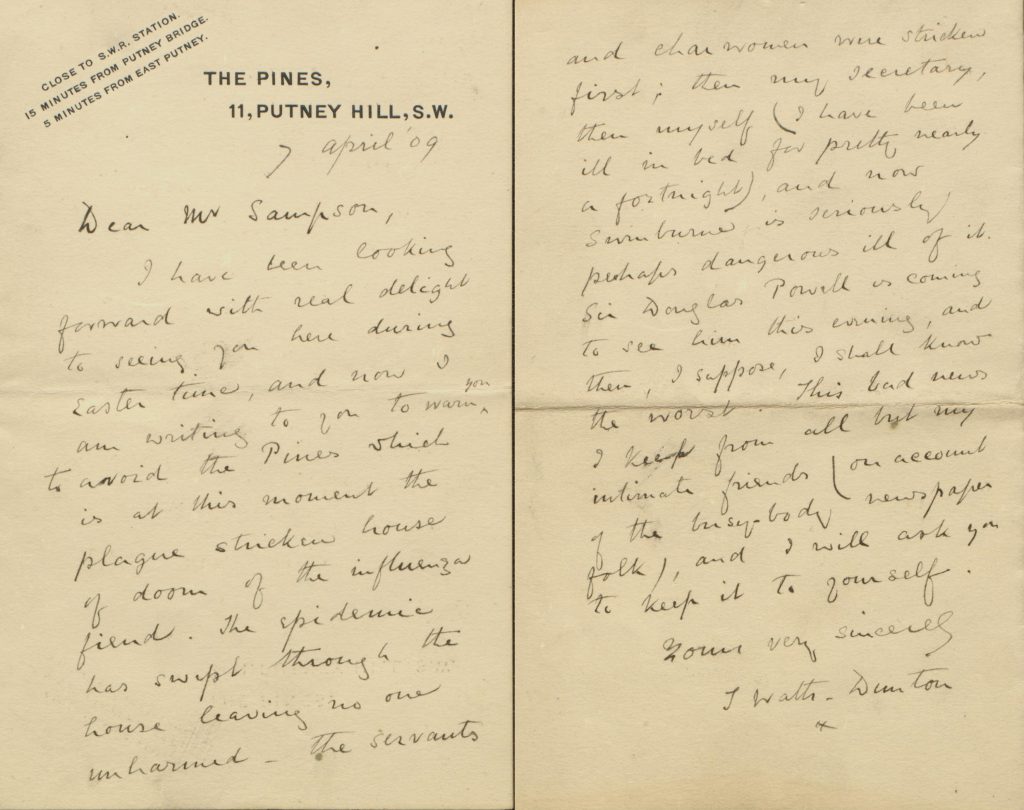 CLOSE TO S.W.R. STATION.
15 MINUTES FROM PUTNEY BRIDGE.
5 MINUTES FROM EAST PUTNEY.
THE PINES,
11, PUTNEY HILL, S.W.
7 April '09
Dear Mr Sampson,
I have been looking
forward with real delight
to seeing you here during
Easter time, and now I
am writing to you to warn you
to avoid the Pines which
is at this moment the
plague stricken house
of doom of the influenza
fiend. The epidemic
has swept through the
house leaving no one
unharmed – the servants
and charwomen were stricken
first; then my secretary,
then myself (I have been
ill in bed for pretty nearly
a fortnight), and now
Swinburne is seriously
perhaps dangerous ill of it.
Sir Douglas Powell is coming
to see him this evening, and
then, I suppose, I shall know
the worst. This bad news
I keep from all but my
intimate friends (on account
of the busy-body newspaper
folk), and I will ask you
to keep it to yourself.
Yours very sincerely
T Watts-Dunton
x